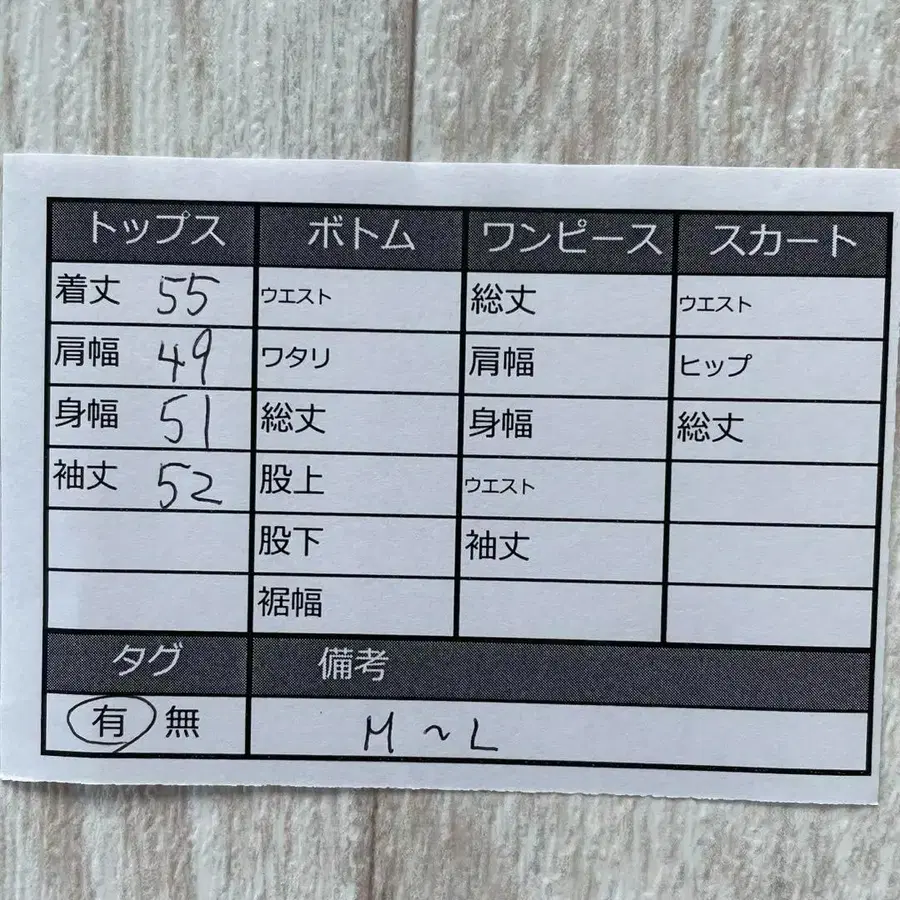 トップス ボトム ワンピース スカート
着丈 55 ウエスト 総丈 ウエスト
肩幅 49 ワタリ 肩幅 ヒップ
身幅 51 総丈 身幅 総丈
袖丈 52 股上 ウエスト
股下 袖丈
裾幅
タグ 備考
有 無 M~L